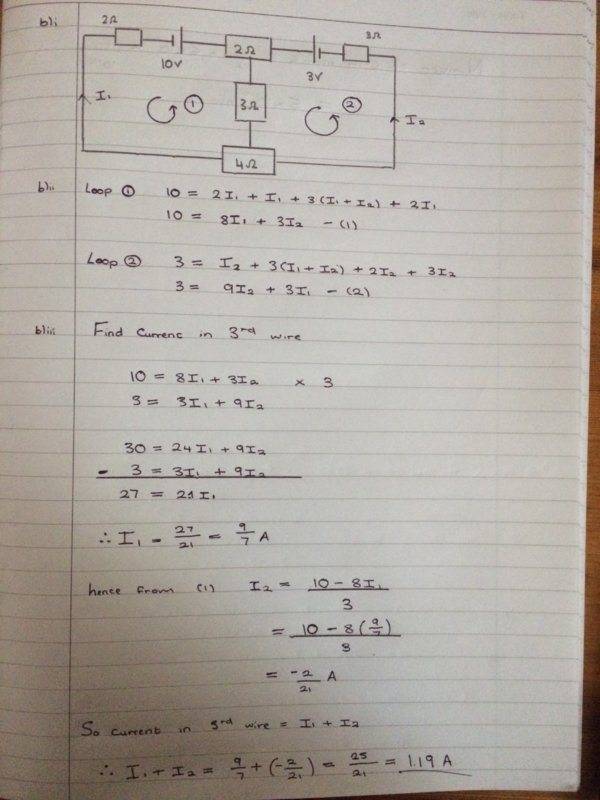 b)i
2Ω 3Ω
2Ω
10V 3V
I₁ ① 3Ω ② I₂
4Ω
b)ii Loop ① 10 = 2I₁ + I₁ + 3(I₁ + I₂) + 2I₁
10 = 8I₁ + 3I₂ - (1)
Loop ② 3 = I₂ + 3(I₁ + I₂) + 2I₂ + 3I₂
3 = 9I₂ + 3I₁ - (2)
b)iii Find current in 3rd wire
10 = 8I₁ + 3I₂ × 3
3 = 3I₁ + 9I₂
30 = 24I₁ + 9I₂
- 3 = 3I₁ + 9I₂
27 = 21I₁
∴ I₁ = 27/21 = 9/7 A
hence from (1) I₂ = (10 - 8I₁)/3
= (10 - 8(9/7))/3
= -2/21 A
So current in 3rd wire = I₁ + I₂
∴ I₁ + I₂ = 9/7 + (-2/21) = 25/21 = 1.19 A